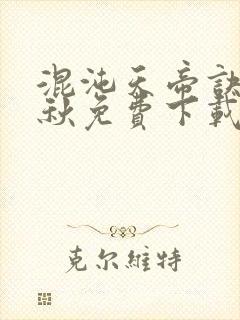 混沌天帝訣
秋免費下載
克尔維特